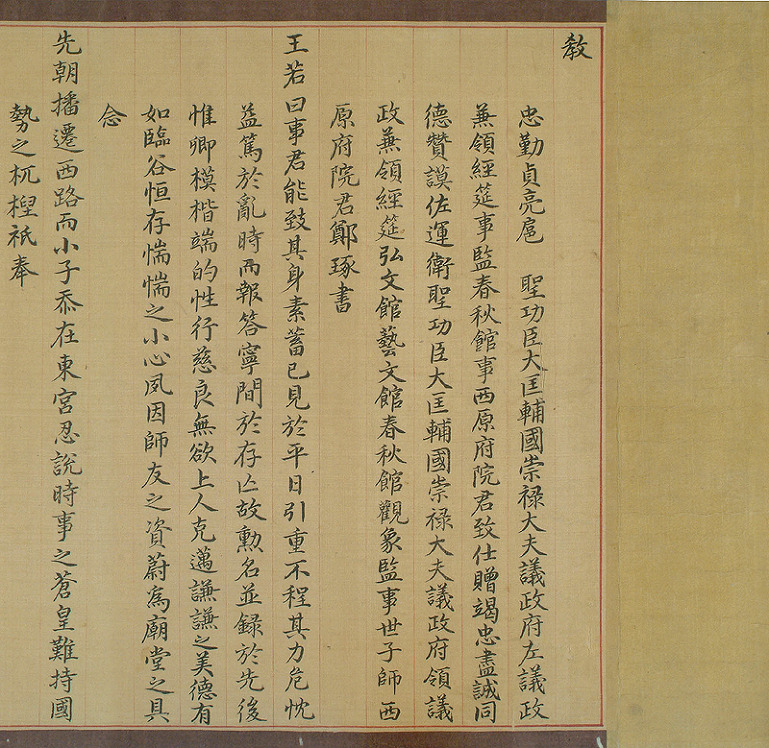 教
忠勤貞亮扈 聖功臣大匡輔國崇禄大夫議政府左議政
兼領經筵事監春秋館事西原府院君致仕贈竭忠盡誠同
德贊謨佐運衛聖功臣大匡輔國崇禄大夫議政府領議
政兼領經筵弘文館藝文館春秋館觀象監事世子師西
原府院君鄭琢書
王若曰事君能致其身素蓄已見於平日引重不程其力危忱
益篤於亂時而報答寧間於存亡故勳名並録於先後
惟卿模楷端的性行慈良無欲上人克邁謙謙之美德有
如臨谷恒存惴惴之小心夙因師友之資蔚爲廟堂之具
念
先朝播遷西路而小子忝在東宮忍說時事之蒼皇難持國
勢之杌楻祇奉